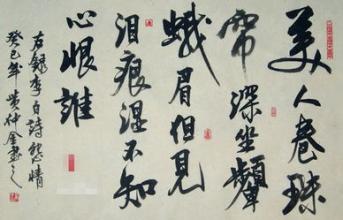 美人卷珠
帘深坐颦
蛾眉但见
泪痕湿不知
心恨谁
右録李白詩怨情
癸巳年黄仲金書之